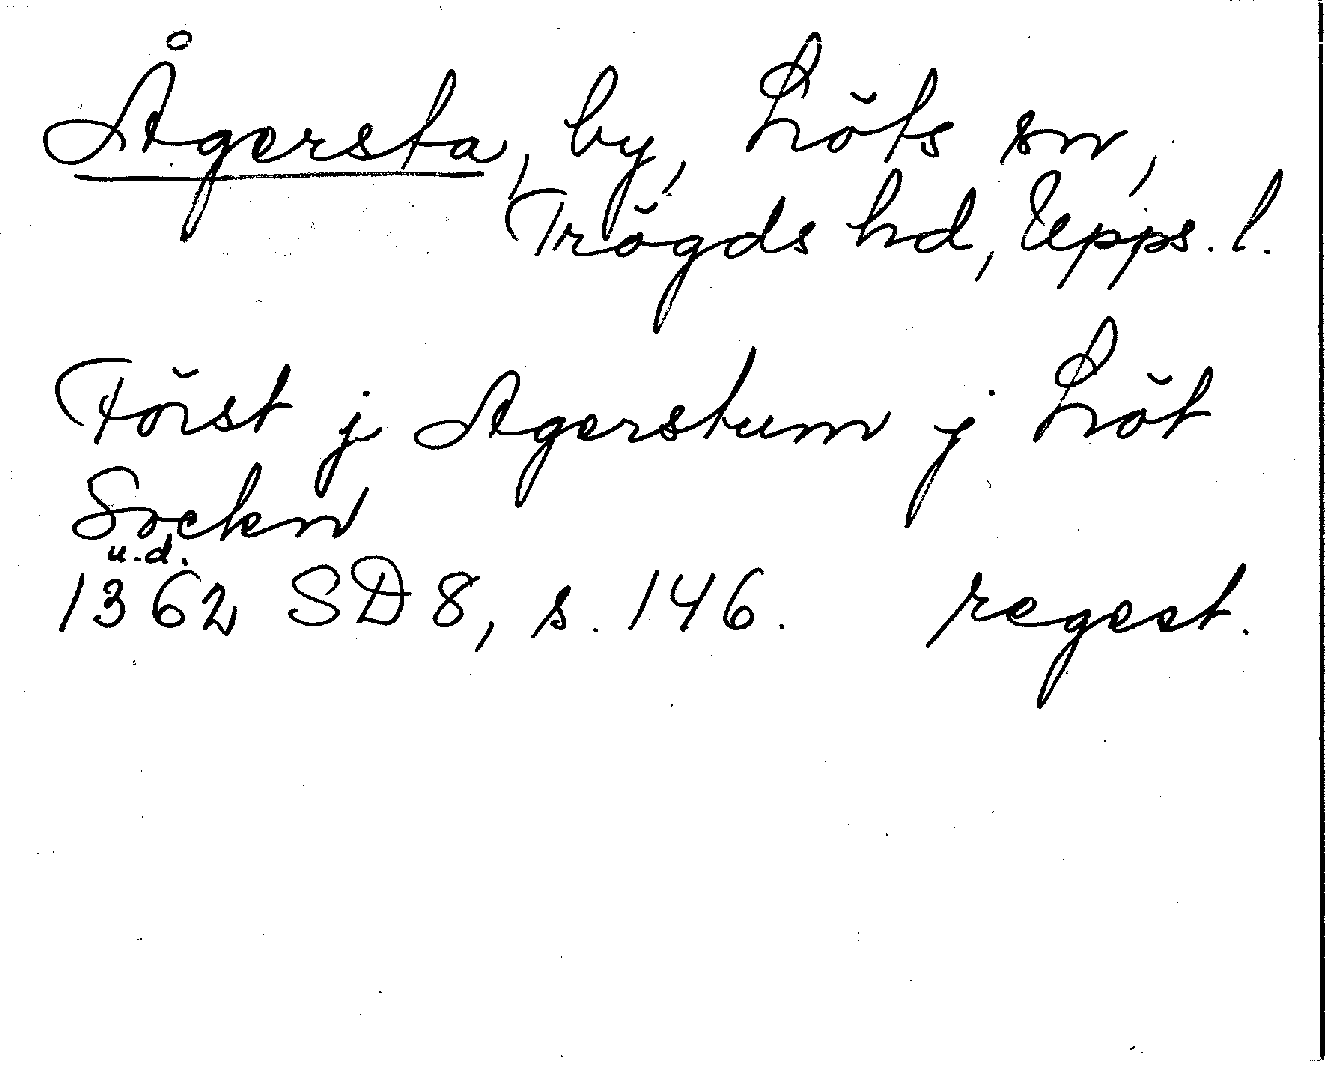 Ågersta, by, Löts sn,
Trögds hd, Upps. l.
Först j Agerstum j Löt
Sockn
u.d.
1362 SD 8, s. 146. regest.